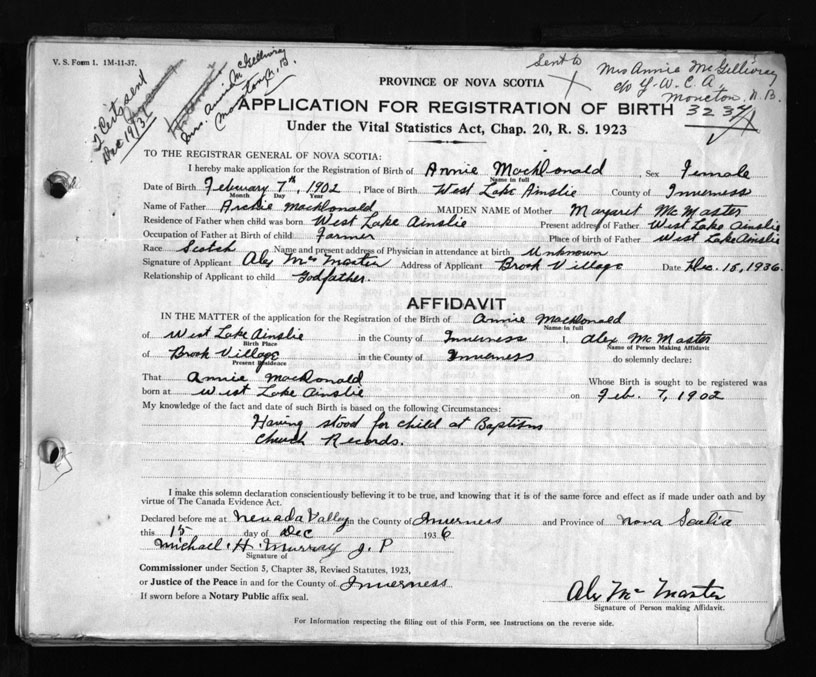 V. S. Form 1. 1M-11-37.
Sent to
Mrs Annie McGillivray
c/o Y.W.C.A
Moncton, N.B.
Mrs. Annie McGillivray
Moncton, N.B.
Dec 19/36
PROVINCE OF NOVA SCOTIA
APPLICATION FOR REGISTRATION OF BIRTH 3237
Under the Vital Statistics Act, Chap. 20, R. S. 1923
TO THE REGISTRAR GENERAL OF NOVA SCOTIA:
I hereby make application for the Registration of Birth of Annie MacDonald, Sex Female
Name in full
Date of Birth February 7th, 1902, Place of Birth West Lake Ainslie County of Inverness
Month Day Year
Name of Father Archie MacDonald MAIDEN NAME of Mother Margaret McMaster
Residence of Father when child was born West Lake Ainslie Present address of Father West Lake Ainslie
Occupation of Father at Birth of child Farmer Place of birth of Father West Lake Ainslie
Race Scotch Name and present address of Physician in attendance at birth Unknown
Signature of Applicant Alex McMaster Address of Applicant Brook Village Date Dec. 15, 1936.
Relationship of Applicant to child Godfather.
AFFIDAVIT
IN THE MATTER of the application for the Registration of the Birth of Annie MacDonald
Name in full
of West Lake Ainslie in the County of Inverness I, Alex McMaster
Birth Place Name of Person Making Affidavit
of Brook Village in the County of Inverness do solemnly declare:
Present Residence
That Annie MacDonald Whose Birth is sought to be registered was
born at West Lake Ainslie on Feb. 7, 1902
My knowledge of the fact and date of such Birth is based on the following Circumstances:
Having stood for child at Baptism
Church Records.
I make this solemn declaration conscientiously believing it to be true, and knowing that it is of the same force and effect as if made under oath and by
virtue of The Canada Evidence Act.
Declared before me at Nevada Valley in the County of Inverness and Province of Nova Scotia
this 15 day of Dec 1936
Michael H. Murray J. P
Signature of
Commissioner under Section 5, Chapter 38, Revised Statutes, 1923,
or Justice of the Peace in and for the County of Inverness
If sworn before a Notary Public affix seal.
Alex McMaster
Signature of Person making Affidavit.
For Information respecting the filling out of this Form, see Instructions on the reverse side.